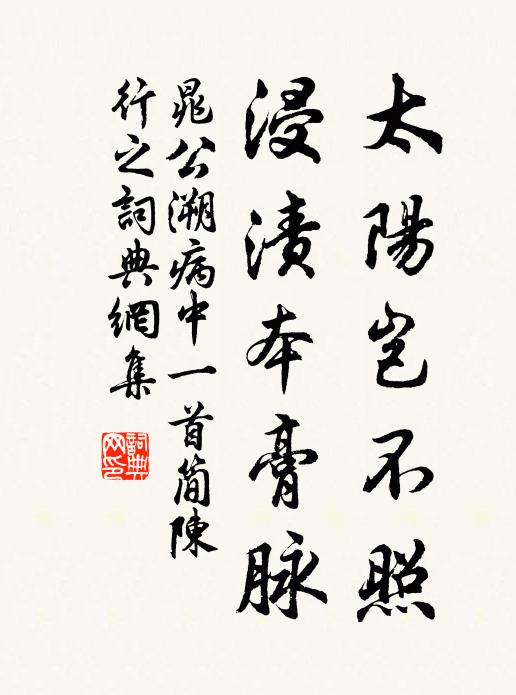 太陽豈不照
浸漬本膏脉
晁公溯病中一首简陳
行之詞典網集
詞典
网印